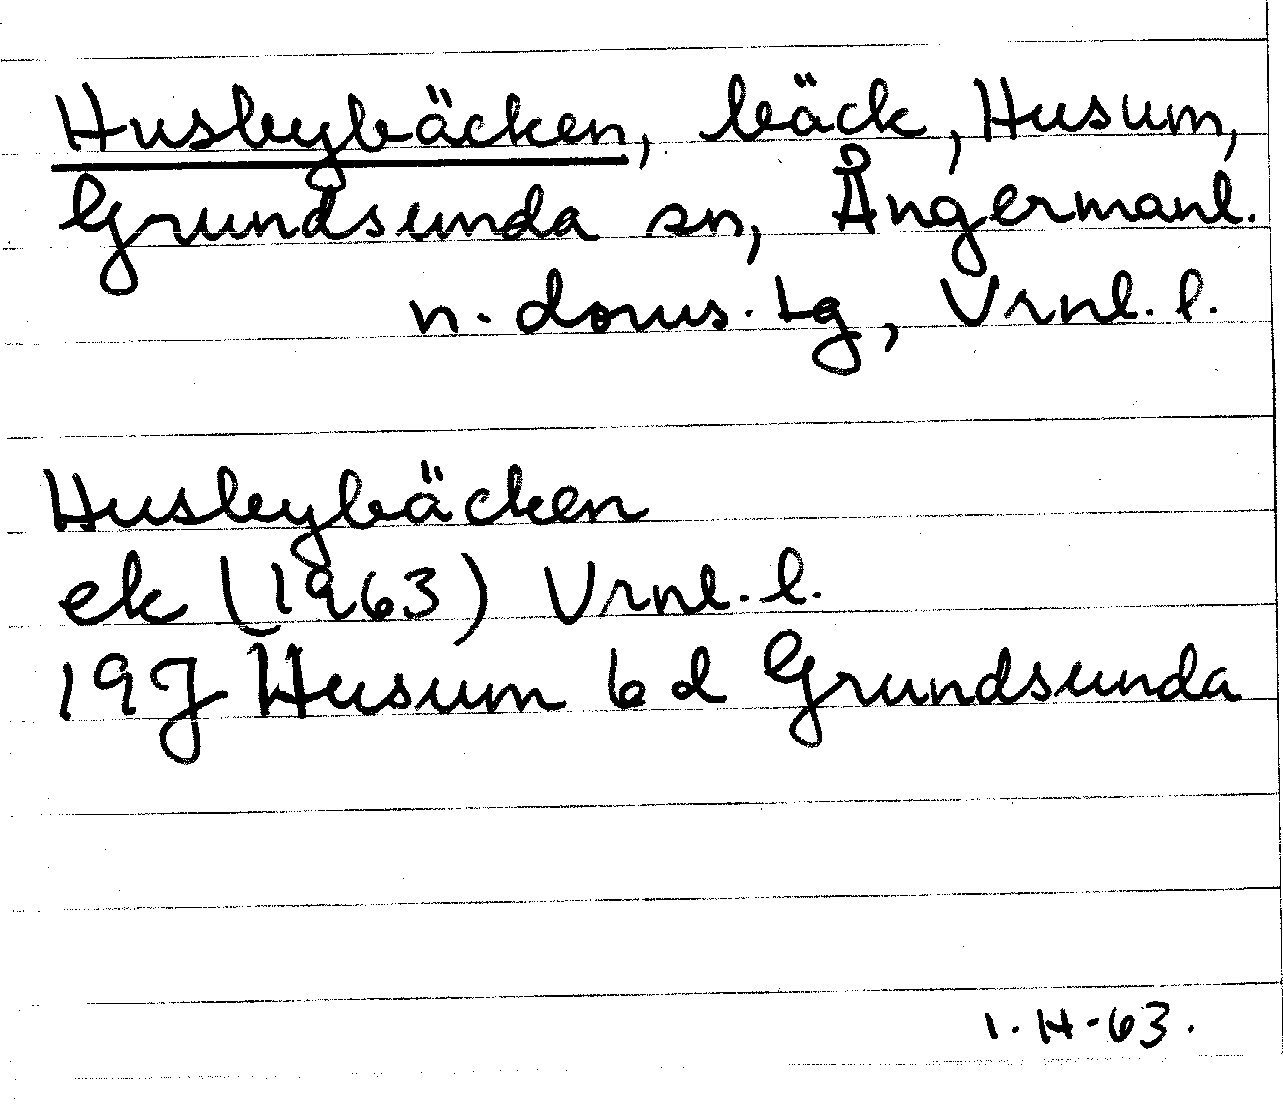 Husbybäcken, bäck, Husum,
Grundsunda sn, Ångermanl.
n. doms. tg, Vrnl. l.
Husbybäcken
ek (1963) Vrnl. l.
19J Husum 6d Grundsunda
1. H-63.